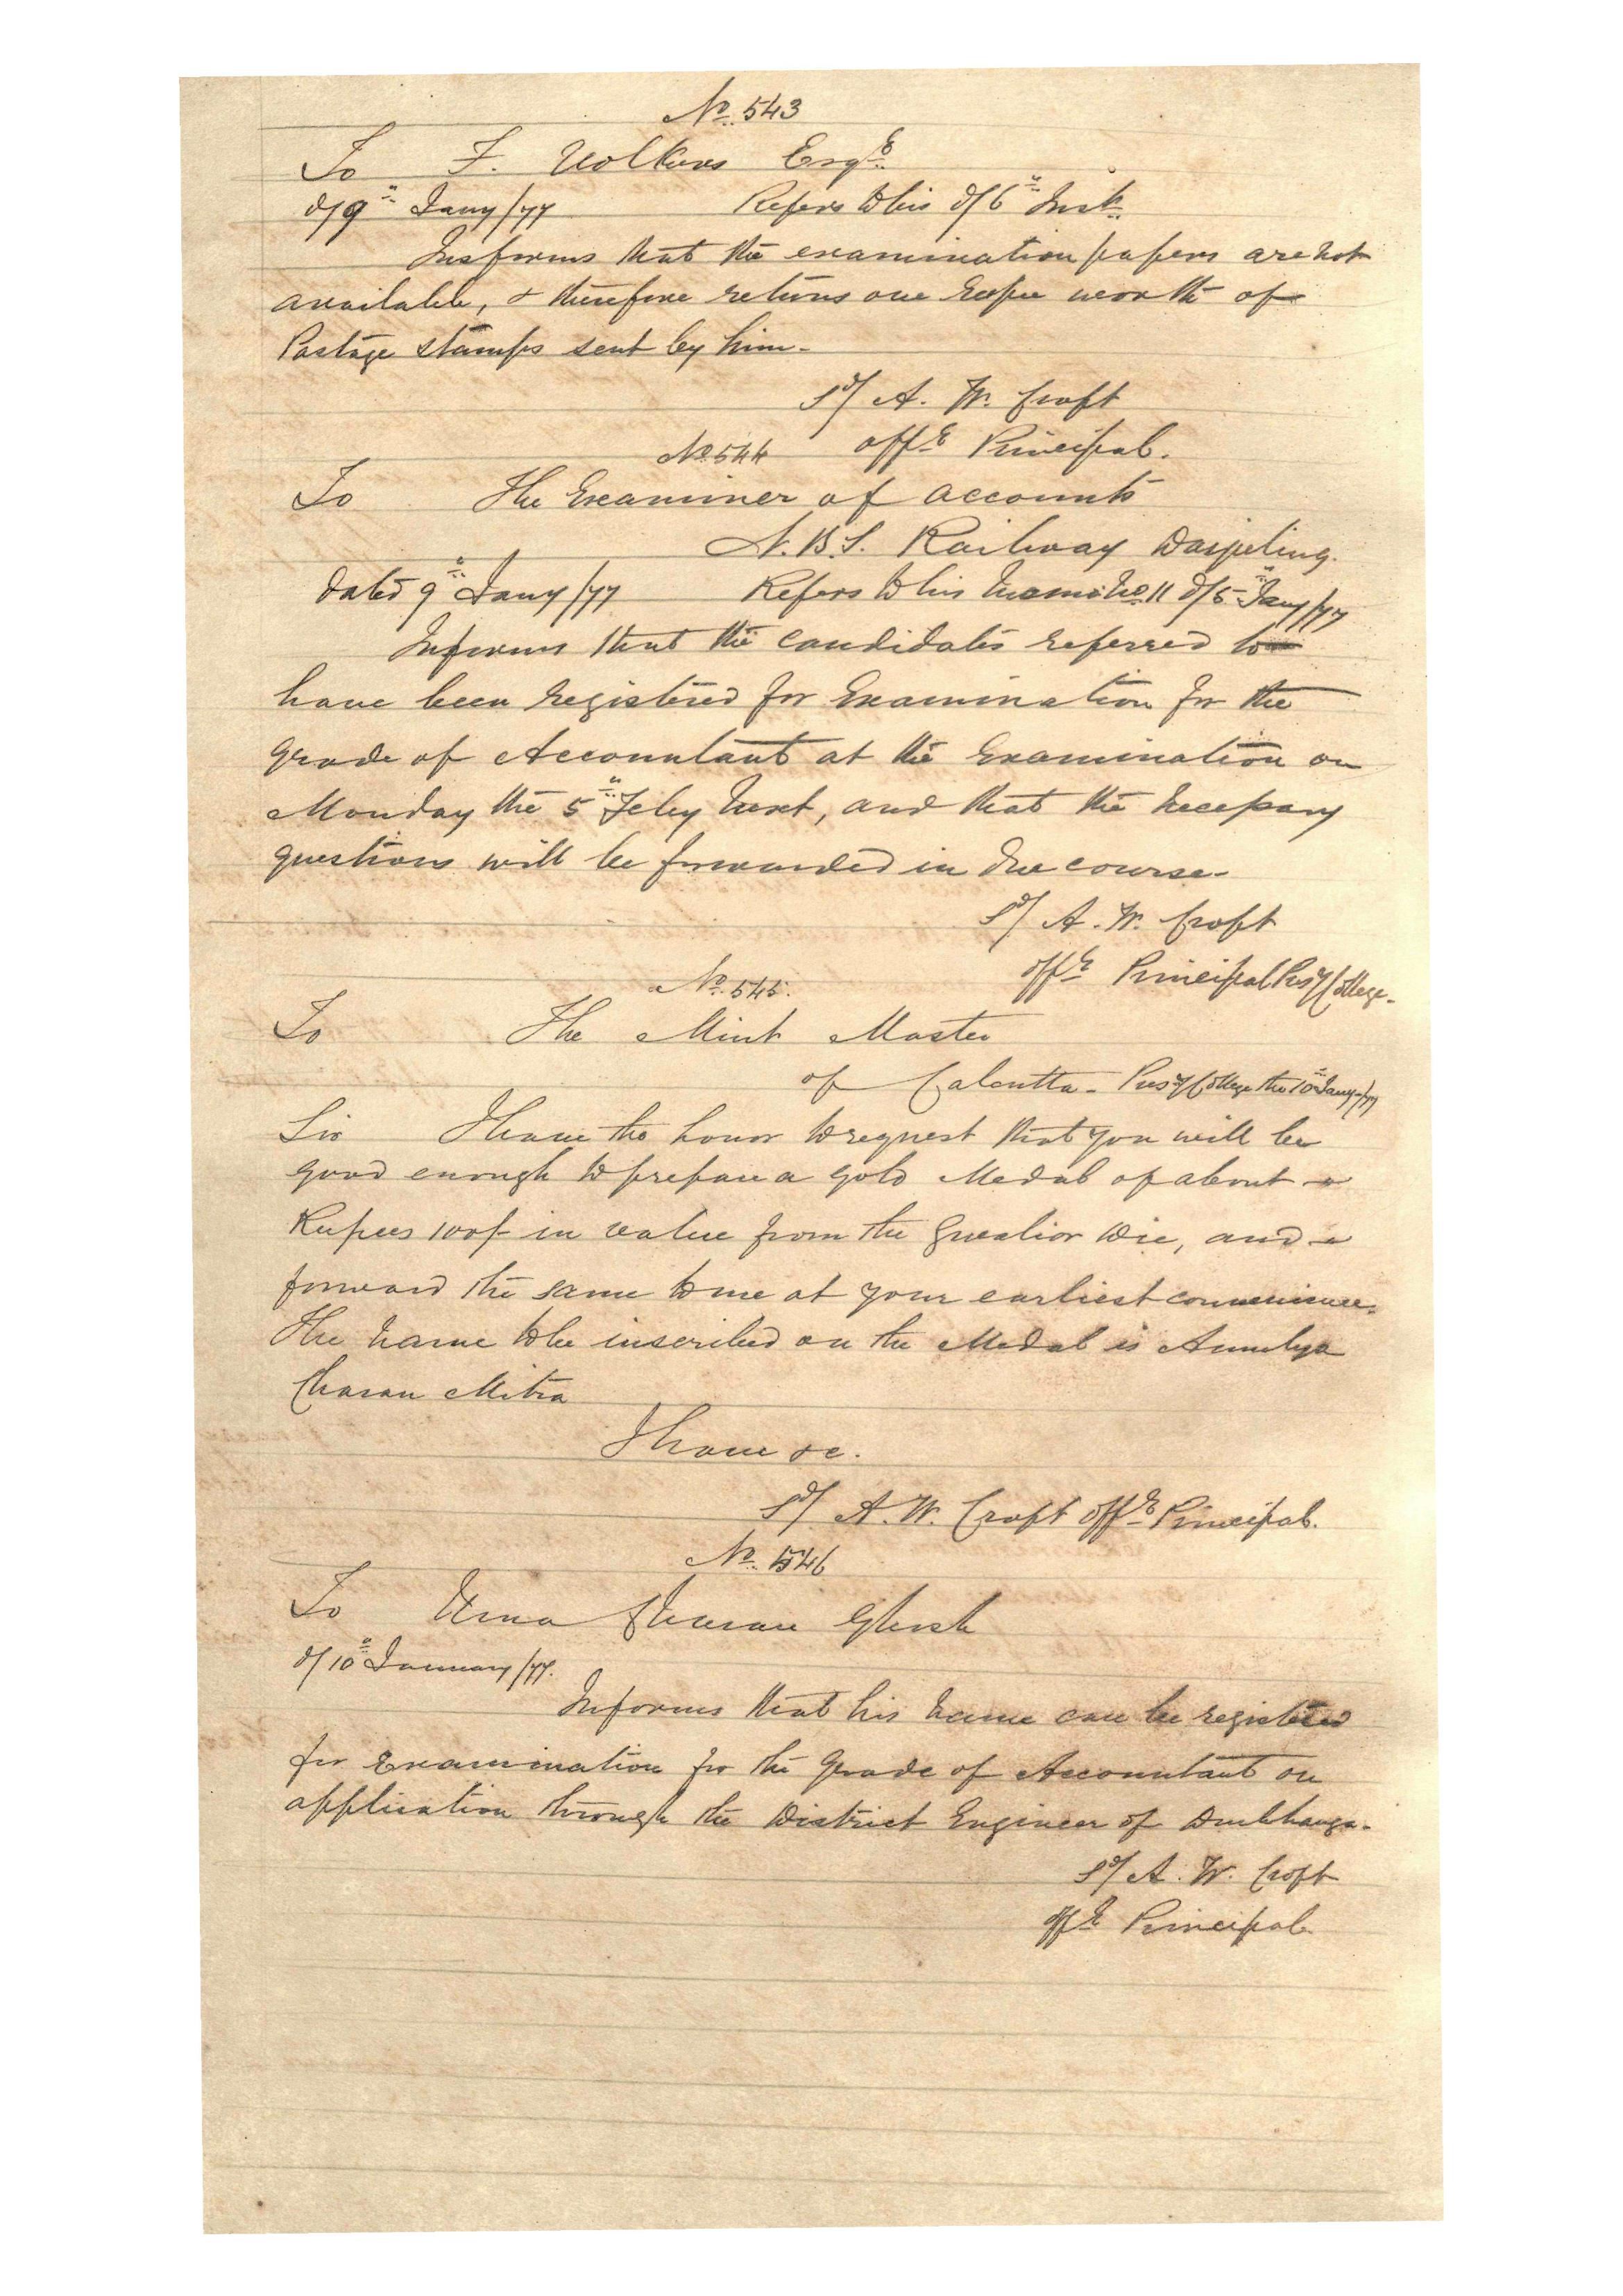 No. 543
To F. Volkers Esqre
d/9th Jany/77 Refers to his d/6th Inst.
Informs that the examination papers are not
available, & therefore returns one rupee worth of
Postage stamps sent by him-
Sd/ A. W. Croft
No. 544 offg Principal.
To The Examiner of accounts
N. B. S. Railway Darjeling.
dated 9th Jany/77 Refers to his memo No. 11 d/5th Jany/77
Informs that the candidates referred to
have been registered for Examination for the
grade of Accountant at the Examination on
Monday the 5th Feby next, and that the necessary
questions will be forwarded in due course-
Sd/ A. W. Croft
offg Principal Presy College-
No. 545.
To The Mint Master
of Calcutta- Presy College the 10th Jany/77
Sir I have the honor to request that you will be
good enough to prepare a gold Medal of about
Rupees 100/- in value from the Gwalior Die, and
forward the same to me at your earliest convenience.
The name to be inscribed on the Medal is Amulya
Charan Mitra
I have &c.
Sd/ A. W. Croft offg Principal.
No. 546
To Uma Charan Ghosh
d/10th January/77.
Informs that his name can be registered
for Examination for the grade of Accountant on
application through the District Engineer of Durbhanga-
Sd/ A. W. Croft
offg Principal